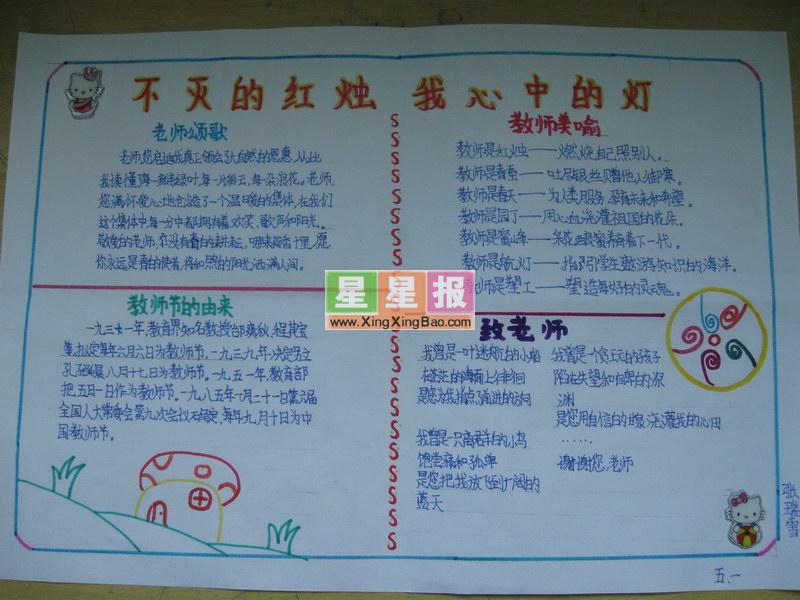 不灭的红烛 我心中的灯
老师颂歌
老师,您启迪我真正领会了大自然的恩惠,从此
我读懂了每一片绿叶,每一片彩云,每一朵浪花。老师,
您满怀爱心地创造了一个温暖的集体,在我们
这个集体中每一分中都拥有着欢笑、歌声和阳光。
敬爱的老师,
你永远是春的使者,将和煦的阳光洒满人间。
教师节的由来
一九三一年,教育界知名教授邰爽秋、程其宝
等,拟定每年六月六日为教师节。一九三九年,决定另立
孔子诞辰八月二十七日为教师节。一九五一年,教育部
把五月一日作为教师节。一九八五年一月二十一日第六届
全国人大常委会第九次会议确定,每年九月十日为中
国教师节。
教师美喻
教师是红烛——燃烧自己照别人。
教师是春蚕——吐尽银丝只赠他人御寒。
教师是春天——为人类服务,孕育未来和希望。
教师是园丁——用心血浇灌祖国的花朵。
教师是蜜峰——采花酿蜜养育着下一代。
教师是航灯——指引学生遨游知识的海洋。
教师是塑工——塑造美好的灵魂。
星星报
www.XingXingBao.com
致老师
我曾是一叶迷航的小船
在茫茫的海面上徘徊
是您为我指点前进的方向
我曾是一只离群的小鸟
饱尝痛和孤单
是您把我放飞到广阔的
蓝天
我曾是一个贪玩的孩子
陷在失望和自卑的深
渊
是您用自信的甘泉浇灌我的心田
……
谢谢您,老师
张瑞雪
五.一